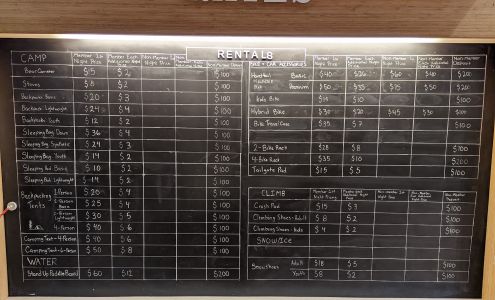 RENTALS
CAMP Member 1st Night Price Member Each Additional Night Non-Member 1st Night Price Non-Member Non-Member Deposit
Bear Canister $15 $2 $100
Stoves $8 $2 $100
Backpacks Basic $20 $3 $100
Backpacks Lightweight $24 $4 $100
Backpacks Youth $12 $2 $100
Sleeping Bag Down $36 $4 $100
Sleeping Bag Synthetic $24 $3 $100
Sleeping Bag Youth $14 $2 $100
Sleeping Pad Basic $10 $2 $100
Sleeping Pad Lightweight $14 $2 $100
Backpacking Tents
1-Person $20 $4 $100
2-Person Basic $25 $4 $100
2-Person Lightweight $30 $5 $100
4-Person $40 $6 $100
Camping Tent - 4-Person $40 $6 $100
Camping Tent - 6-Person $50 $8 $100
WATER
Stand Up Paddle Board $60 $12 $200
BIKE + CAR ACCESSORIES Member 1st Night Price Member Each Additional Night Non-Member 1st Night Price Non-Member Deposit
Mountain Bike
Basic $40 $60 $40 $200
Premium $50 $35 $75 $50 $200
Kids Bike $15 $10 $100
Hybrid Bike $30 $20 $45 $30 $100
Bike Travel Case $35 $7 $100
2-Bike Rack $28 $8 $100
4-Bike Rack $35 $10 $200
Tailgate Pad $15 $5 $100
CLIMB Member 1st Night Pricing Non-Member 1st Night Price Non-Member Deposit
Crash Pad $15 $100
Climbing Shoes - Adult $8 $2 $100
Climbing Shoes - Kids $4 $2 $100
SNOW/ICE
Snowshoes
Adult $18 $5 $100
Youth $8 $2 $100